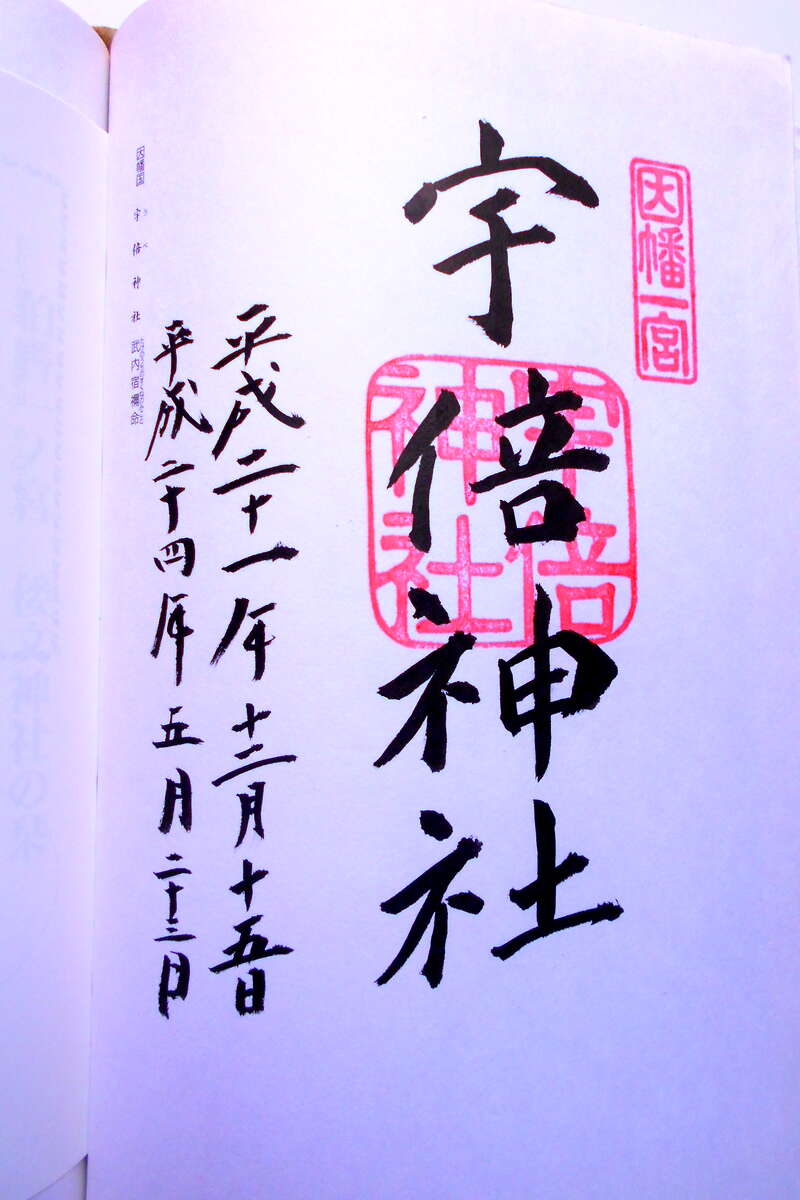 因幡一宮
宇倍神社
宇倍
神社
平成二十一年十二月十五日
平成二十四年五月二十三日
因幡国 宇倍神社 武内宿禰命
うべ